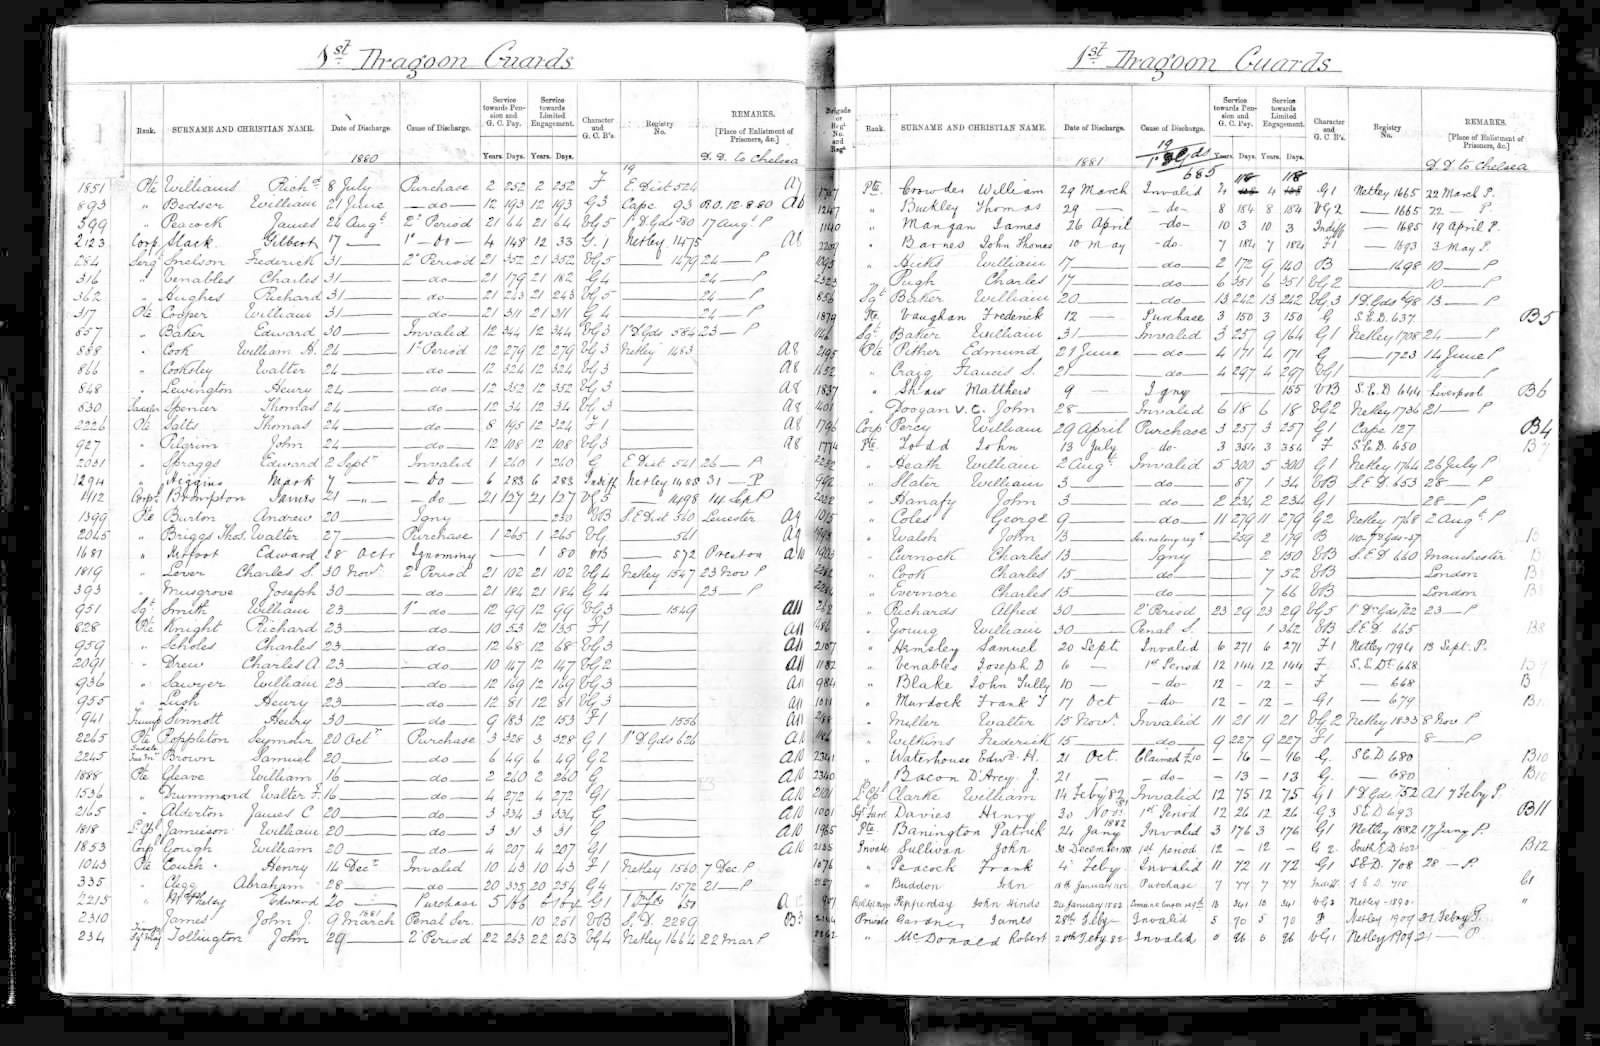 1st Dragoon Guards
Rank. SURNAME AND CHRISTIAN NAME. Date of Discharge. Cause of Discharge. Service towards Pension and G. C. Pay. Service towards Limited Engagement. Character and G. C. B's. Registry No. REMARKS. [Place of Enlistment of Prisoners, &c.]
Years. Days. Years. Days.
1880 19 D.D. to Chelsea
1851 Pte Williams Richd 8 July Purchase 2 252 2 252 F E Dist 524
893 " Bedser William 21 June — do — 12 193 12 193 G3 Cape 93 R.O. 12.8.80
599 " Peacock James 24 Augt 2d Period 21 64 21 64 VG5 1st D. Gds 80 17 Augt P
2123 Corp Slack Gilbert 17 — 1st — Do — 4 148 12 33 G.1 Netley 1475 A8
284 Sergt Snelson Frederick 31 — 2d Period 21 352 21 352 VG5 — 1479 24 — P
316 " Venables Charles 31 — do — 21 179 21 182 G4 — 24 — P
362 " Hughes Richard 31 — do — 21 243 21 243 VG5 — 24 — P
317 Pte Cooper William 31 — do — 21 311 21 311 G4 — 24 — P
857 " Baker Edward 30 — Invalid 12 344 12 344 VG3 1st D. Gds 584 23 — P
888 " Cook William H. 24 — 1st Period 12 279 12 279 VG3 Netley 1483 A8
866 " Cooksley Walter 24 — do — 12 324 12 324 VG3 — A8
848 " Lewington Henry 24 — do — 12 352 12 352 VG3 — A8
830 Saddler Spencer Thomas 24 — do — 12 34 12 34 VG3 — A8
2226 Pte Salts Thomas 24 — do — 8 195 12 324 F1 — A8
927 " Pilgrim John 24 — do — 12 108 12 108 VG3 — A8
2031 " Spraggs Edward 2 Septr Invalid 1 260 1 260 G E Dist 541 26 — P
1294 " Higgins Mark 7 — Do — 6 283 6 283 Indiff Netley 1485 31 — P
1412 Corpl Brompton James 21 — do 21 127 21 127 VG5 — 1498 14 Sep P
1399 Pte Burton Andrew 20 — Igny — 230 VB S.E Dist 560 Leicester A9
2045 " Briggs Thos. Walter 27 — Purchase 1 265 1 265 VG — 561 A9
1681 " Edward 28 Octr Ignominy — 1 80 VB — 572 Preston A10
1819 " Lever Charles S. 30 Novr 2d Period 21 102 21 102 VG4 Netley 1547 23 Nov P
393 " Musgrove Joseph 30 — do — 21 184 21 184 G4 — 23 — P
951 Sgt Smith William 23 — 1st do — 12 99 12 99 VG3 — 1549 A11
828 Pte Knight Richard 23 — do — 10 53 12 135 F1 — A11
959 " Scholes Charles 23 — do — 12 68 12 68 VG3 — A11
2091 " Drew Charles A 23 — do — 10 147 12 147 VG2 — A11
936 " Sawyer William 23 — do — 12 169 12 169 VG3 — A11
955 " Lush Henry 23 — do — 12 81 12 81 VG3 — A11
941 Trump Sinnott Henry 30 — do — 9 183 12 153 F1 — 1556 A11
2265 Pte Poppleton Seymour 20 Octr Purchase 3 328 3 328 G1 1st D. Gds 626 A10
2245 Brown Samuel 20 — do — 6 49 6 49 G2 — A10
1888 Pte Gleave William 16 — do — 2 260 2 260 G — A10
1536 " Drummond Walter F. 16 — do — 4 272 4 272 G1 — A10
2165 " Alderton James C 20 — do — 3 334 3 334 G — A10
1818 L Cpl Jamieson William 20 — do — 3 31 3 31 G — A10
1853 Corp Gough William 20 — do — 4 207 4 207 G1 — A10
1043 Pte Couch Henry 14 Decr Invalid 10 43 10 43 F1 Netley 1560 7 Dec P
335 " Clegg Abraham 28 — do — 20 335 20 254 G4 — 1572 21 — P
2215 " Edward 20 — Purchase 5 G1 651
2310 James John J. 9 March 1881 Penal Ser. 10 251 VB S.D. 2289 B3
234 Tollington John 29 — 2d Period 22 263 22 263 VG4 Netley 1664 22 Mar P
1st Dragoon Guards
Brigade or Regl No. and Regt Rank. SURNAME AND CHRISTIAN NAME. Date of Discharge. Cause of Discharge. Service towards Pension and G. C. Pay. Service towards Limited Engagement. Character and G. C. B's. Registry No. REMARKS. [Place of Enlistment of Prisoners, &c.]
Years. Days. Years. Days.
1881 19 1st D Gds 685 D.D to Chelsea
Pte. Crowder William 29 March Invalid 4 118 4 118 G1 Netley 1665 22 March P.
" Buckley Thomas 29 — do — 8 184 8 184 VG2 — 1665 22 — P
1140 " Mangan James 26 April — do — 10 3 10 3 Indiff — 1685 19 April P.
" Barnes John Thomas 10 May — do — 7 184 7 184 F1 — 1693 3 May P.
" Hicks William 17 — do — 2 172 9 140 VB — 1698 10 — P
2323 " Pugh Charles 17 — do — 6 351 6 351 VG2 — 10 — P
856 Sgt Baker William 20 — do — 13 242 13 242 VG3 1st D. Gds 98 13 — P
1879 Pte. Vaughan Frederick 12 — Purchase 3 150 3 150 G S.E.D. 637 B5
Sgt Baker William 31 — Invalid 3 257 9 164 G1 Netley 1708 24 — P
2195 Pte Pither Edmund 21 June — do — 4 171 4 171 G — 1723 14 June P
1652 " Craig Francis S. 21 — do — 4 297 4 297 VG1 — 14 — P
1837 " Shaw Matthew 9 — Igny — 155 VB S.E.D 644 Liverpool B6
1401 " Doogan V.C. John 28 — Invalid 6 18 6 18 VG2 Netley 1736 21 — P
1796 Corp Percy William 29 April Purchase 3 257 3 257 G1 Cape 127 B4
1774 Pte. Todd John 13 July — do — 3 354 3 354 F S.E.D. 650 B7
" Heath William 2 Augt Invalid 5 300 5 300 G1 Netley 1764 26 July P
" Slater William 3 — do — 87 1 34 VB S.E.D 653 28 — P
" Hanafy John 3 — do — 2 234 2 234 G1 — 28 — P
1015 " Coles George 9 — do — 11 279 11 279 G2 Netley 1768 2 Augt P
" Walsh John 13 — 259 2 179 B
" Curnock Charles 13 — Igny — 2 150 VB S.E.D 660 Manchester B
" Cook Charles 15 — do — 7 52 VB — London B8
" Evernore Charles 15 — do — 7 66 VB — London B8
" Richards Alfred 30 — 2d Period 23 29 23 29 VG5 1st Dn Gds 722 23 — P
" Young William 30 — Penal S. — 1 362 VB S.E.D 665 B8
2187 " Armsley Samuel 20 Sept. Invalid 6 271 6 271 F1 Netley 1794 13 Sept. P.
1182 " Venables Joseph D 6 — 1st Period 12 144 12 144 F S.E.Dt 668
984 " Blake John Tully 10 — do — 12 — 12 — F — 668 B
1011 " Murdock Frank T 17 Oct — do — 12 — 12 — G1 — 679
" Miller Walter 15 Novr. Invalid 11 21 11 21 VG2 Netley 1833 8 Nov P
Wilkins Frederick 15 — do — 9 227 9 227 F1 — 8 — P
2341 " Waterhouse Edwd H. 21 Oct. Claimed £10 — 16 — 16 G. S.E.D 680 B10
2340 " Bacon D'Arcy J. 21 — do — — 13 — 13 G. — 680 B10
2101 L Cpl Clarke William 14 Feby 82 Invalid 12 75 12 75 G1 1st D. Gds 752 A1 7 Feby P.
1001 Davies Henry 30 Novr 1881 1st Period 12 26 12 26 G3 S.E.D 693 B11
1985 Pte. Banington Patrick 24 Jany 1882 Invalid 3 176 3 176 G1 Netley 1882 17 Jany P.
Private Sullivan John 30 December 1st period 12 — 12 — G 2. South E.D B12
1076 " Peacock Frank 4 Feby. Invalid 11 72 11 72 G1 S.E.D. 708 28 — P.
" Buddon John Purchase 7 77 7 77 Indiff. S.E.D. 710. C1
Pepperday John Hinds 24 January 1882 13 341 13 341 VG2 Netley 1890. "
Private Gardner James 28th Feby Invalid 5 70 5 70 F Netley 1909 21 Febry P.
" McDonald Robert 28th Feby 82 Invalid 0 96 0 96 VG1 Netley 1909 21 — P.